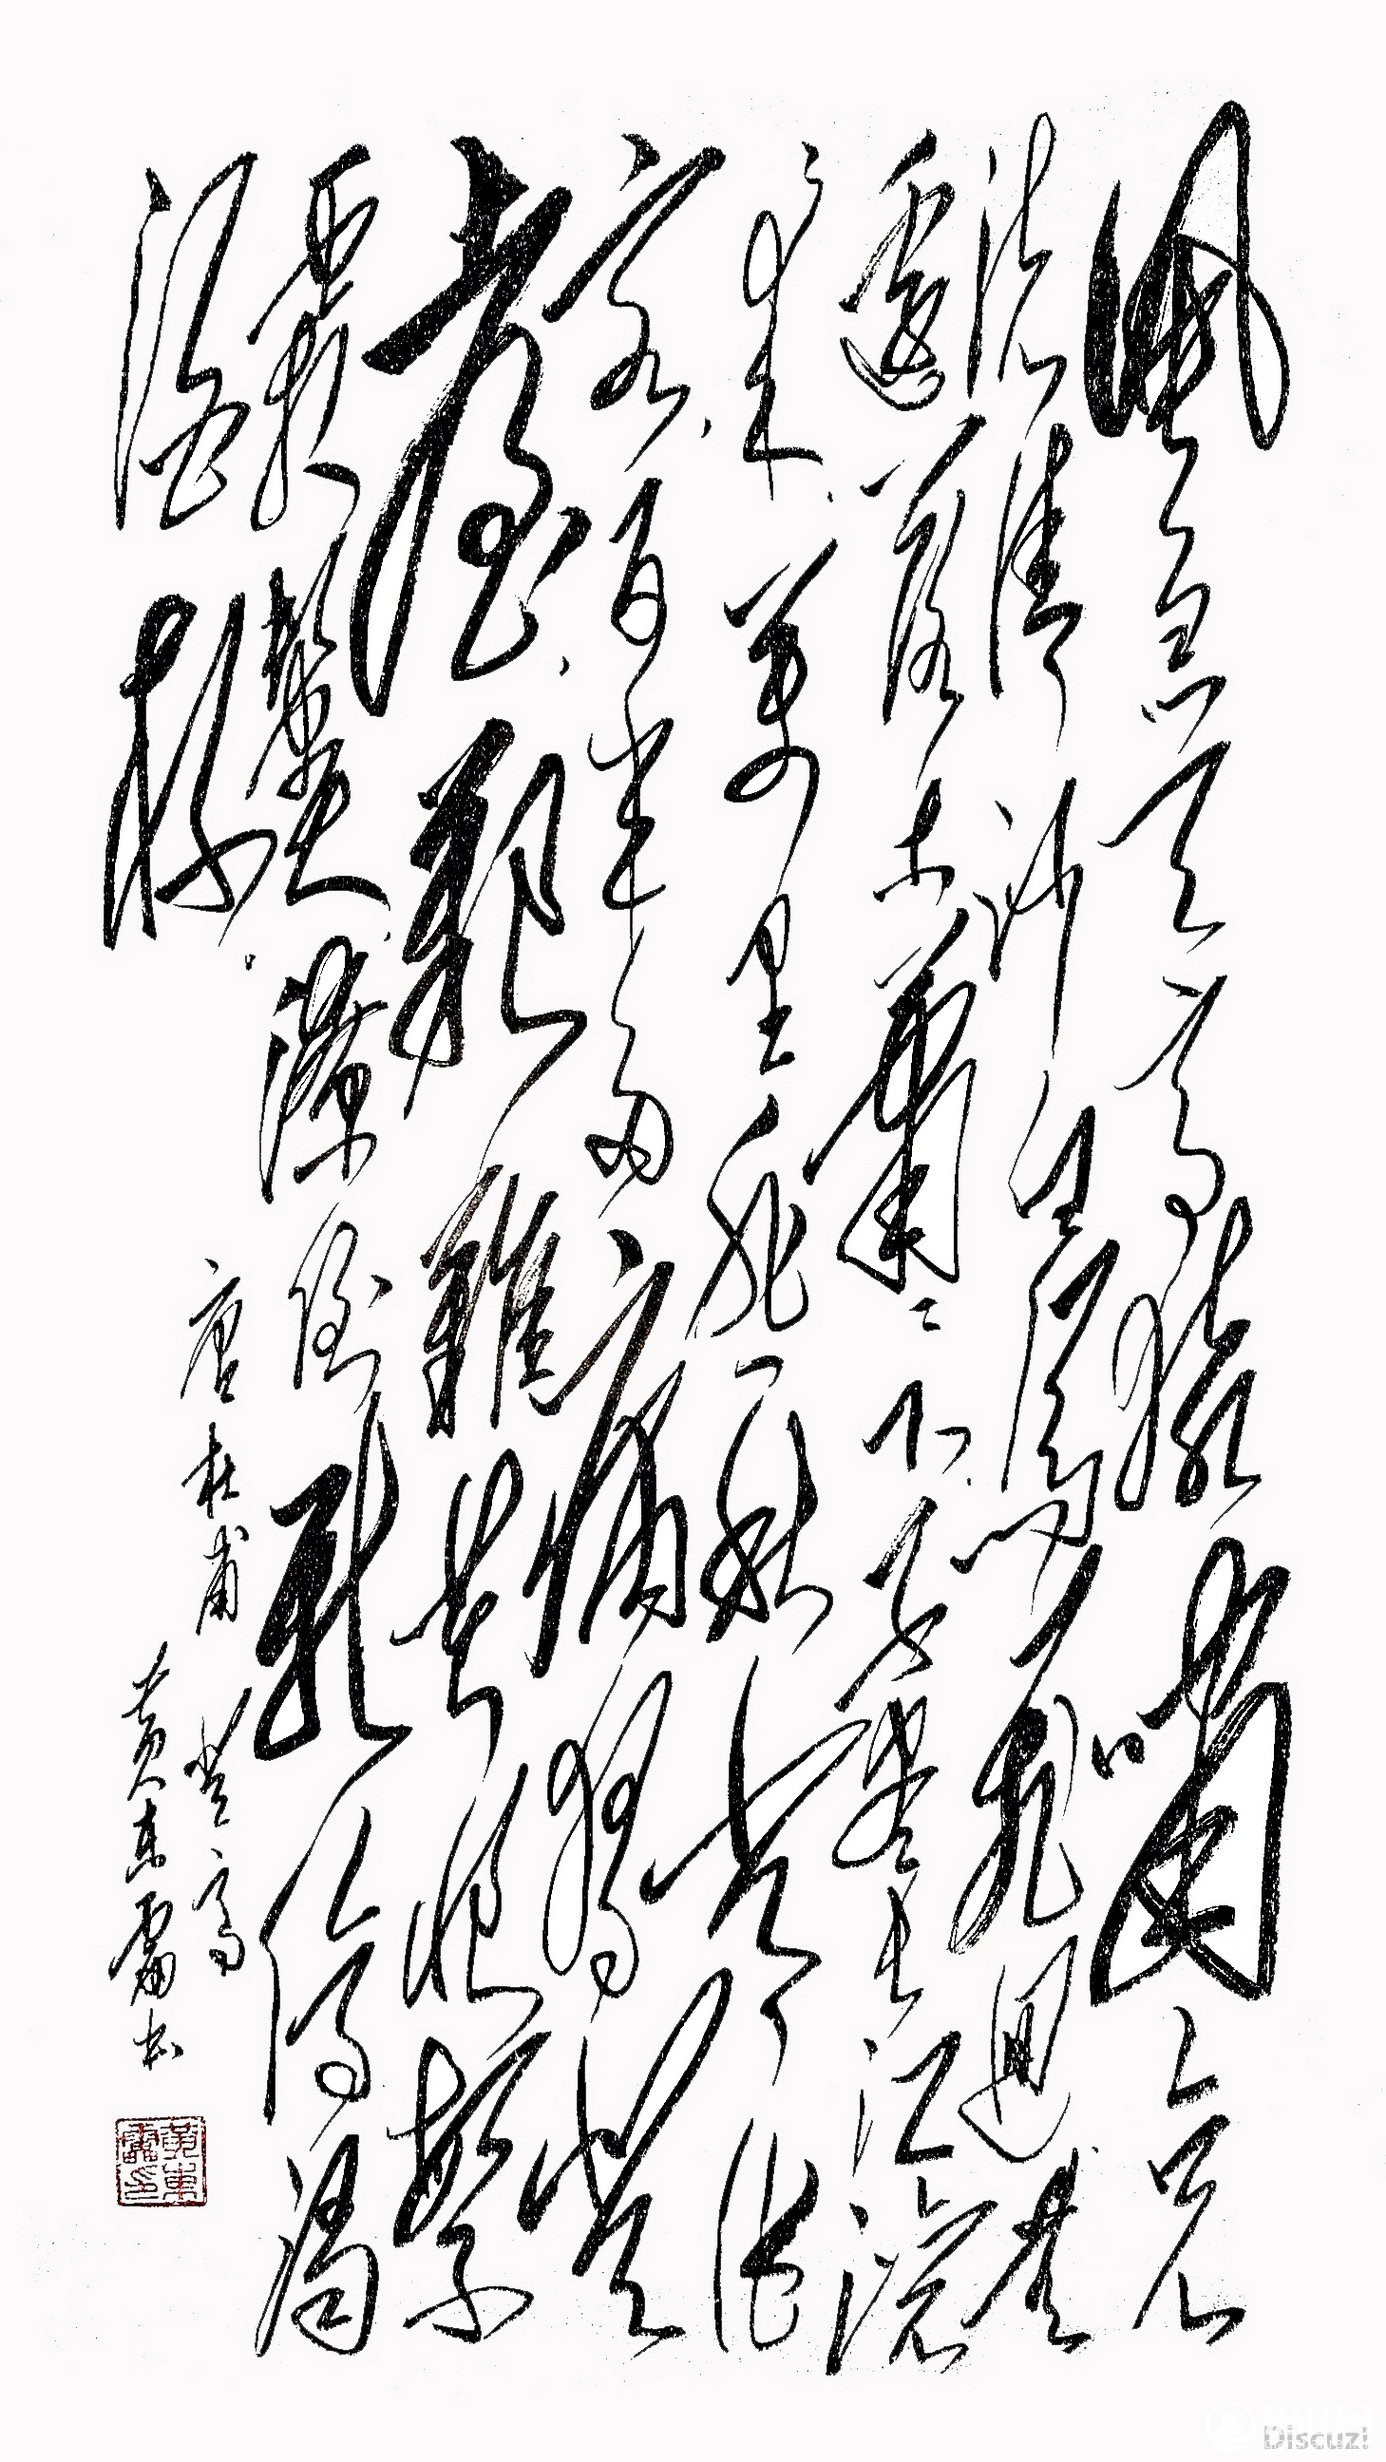 風急天高猿嘯哀
渚清沙白鳥飛迴無
邊落木蕭〻下不盡長江滾
〻來萬里悲秋常作
客百年多病獨登
臺艱難苦恨繁
霜鬢潦倒新停濁
酒杯
唐杜甫登高
黄东雷书
黄東雷印
Discuz!